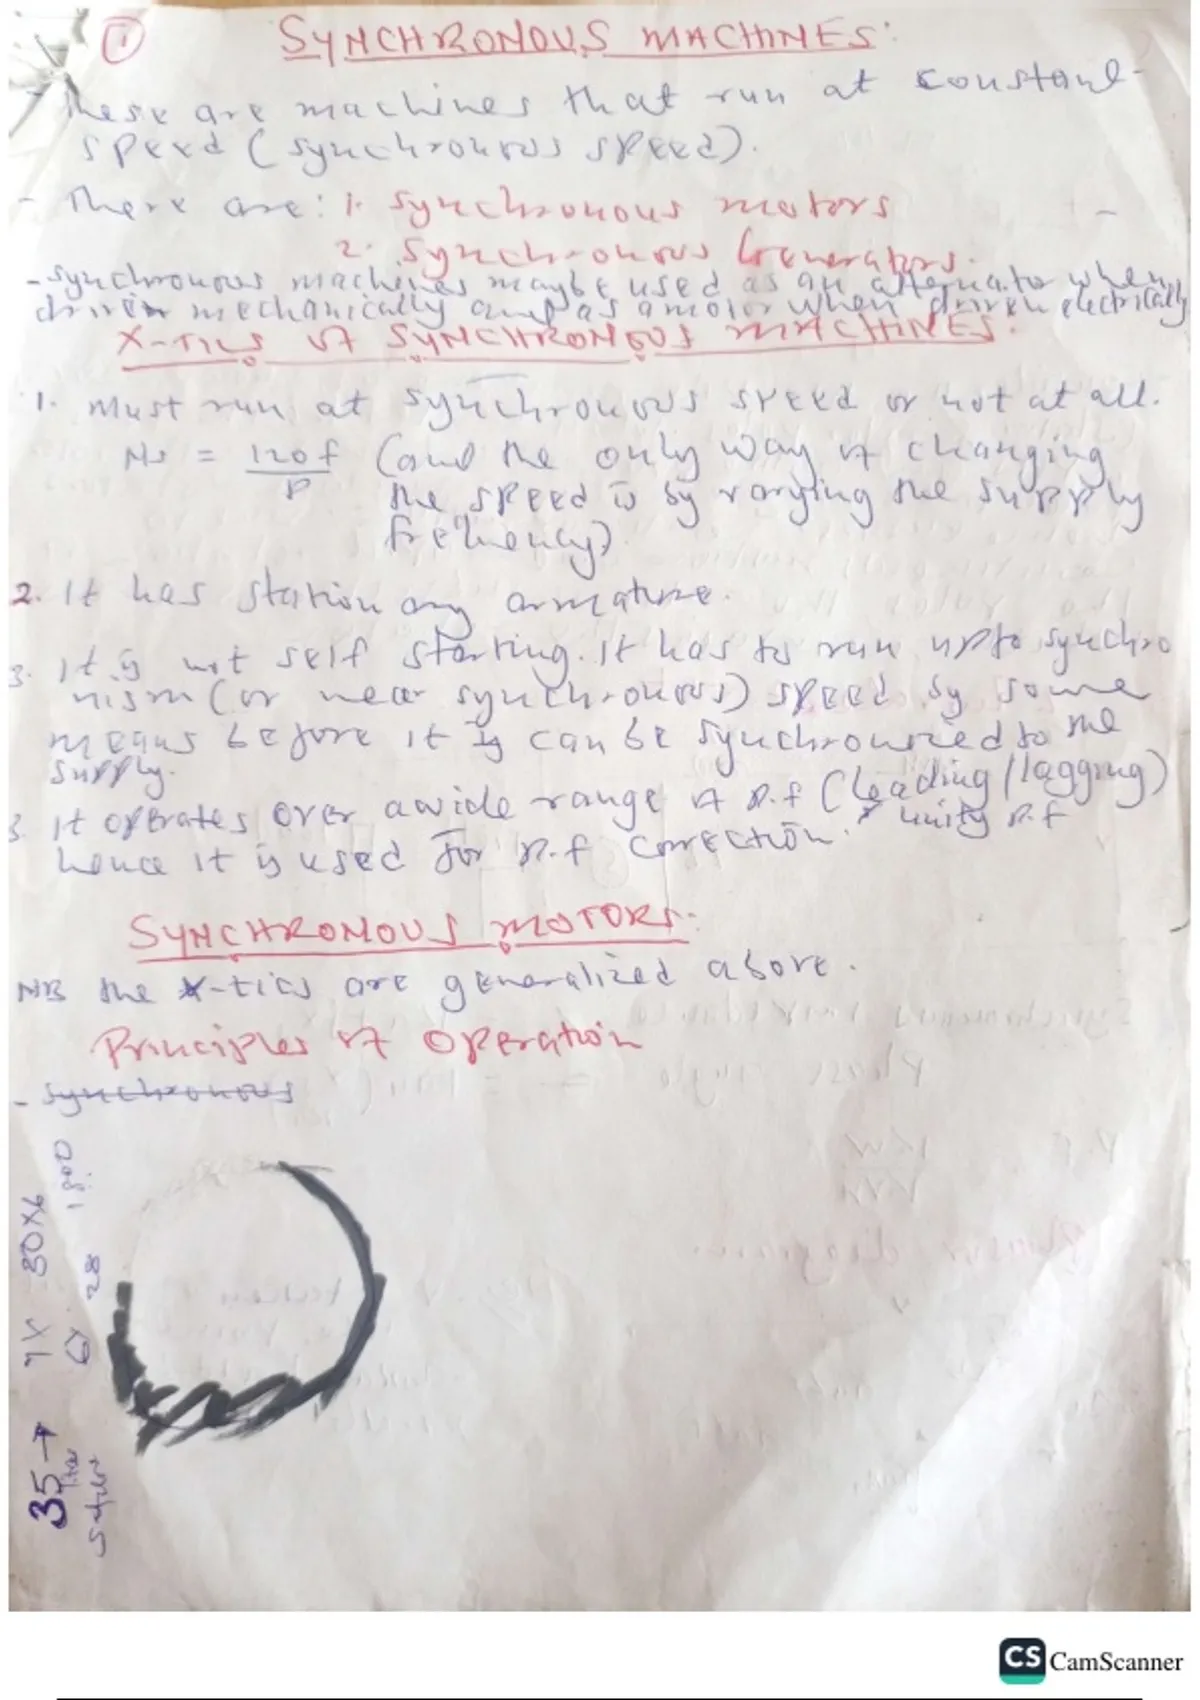 1
SYNCHRONOUS MACHINES:
- These are machines that run at constant
speed (synchronous speed).
- There are: 1. Synchronous motors
2. Synchronous Generators.
- synchronous machines maybe used as an alternator when
driven mechanically and as a motor when driven electrically
X-TICS OF SYNCHRONOUS MACHINES:
1. Must run at synchronous speed or not at all.
Ns = 120f (and the only way of changing
P the speed is by varying the supply
frequency)
2. It has stationary armature.
3. It is not self starting. It has to run upto synchro
nism (or near synchronous) speed by some
means before it is can be synchronized to the
supply.
3. It operates over a wide range of p.f (leading/lagging)
hence it is used for p.f correction. & unity p.f
SYNCHRONOUS MOTORS:
NB the X-tics are generalized above.
Principles of Operation
- Synchronous
35
80X6
28
1800